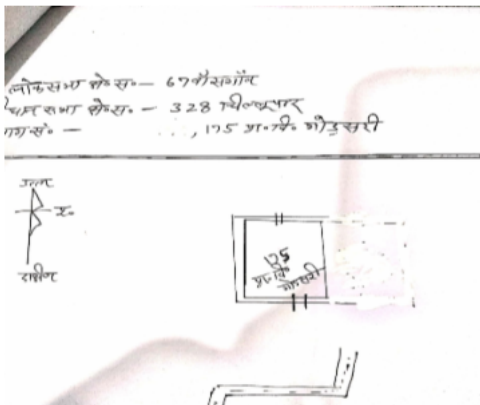 लोकसभा क्षे०सं०— 67 बाँसगाँव
सभा क्षे०सं० — 328 चिल्लूपार
भाग सं० — 175 प्रा०वि० गोडसरी
उत्तर
दक्षिण
175
प्रा०वि०
गोडसरी